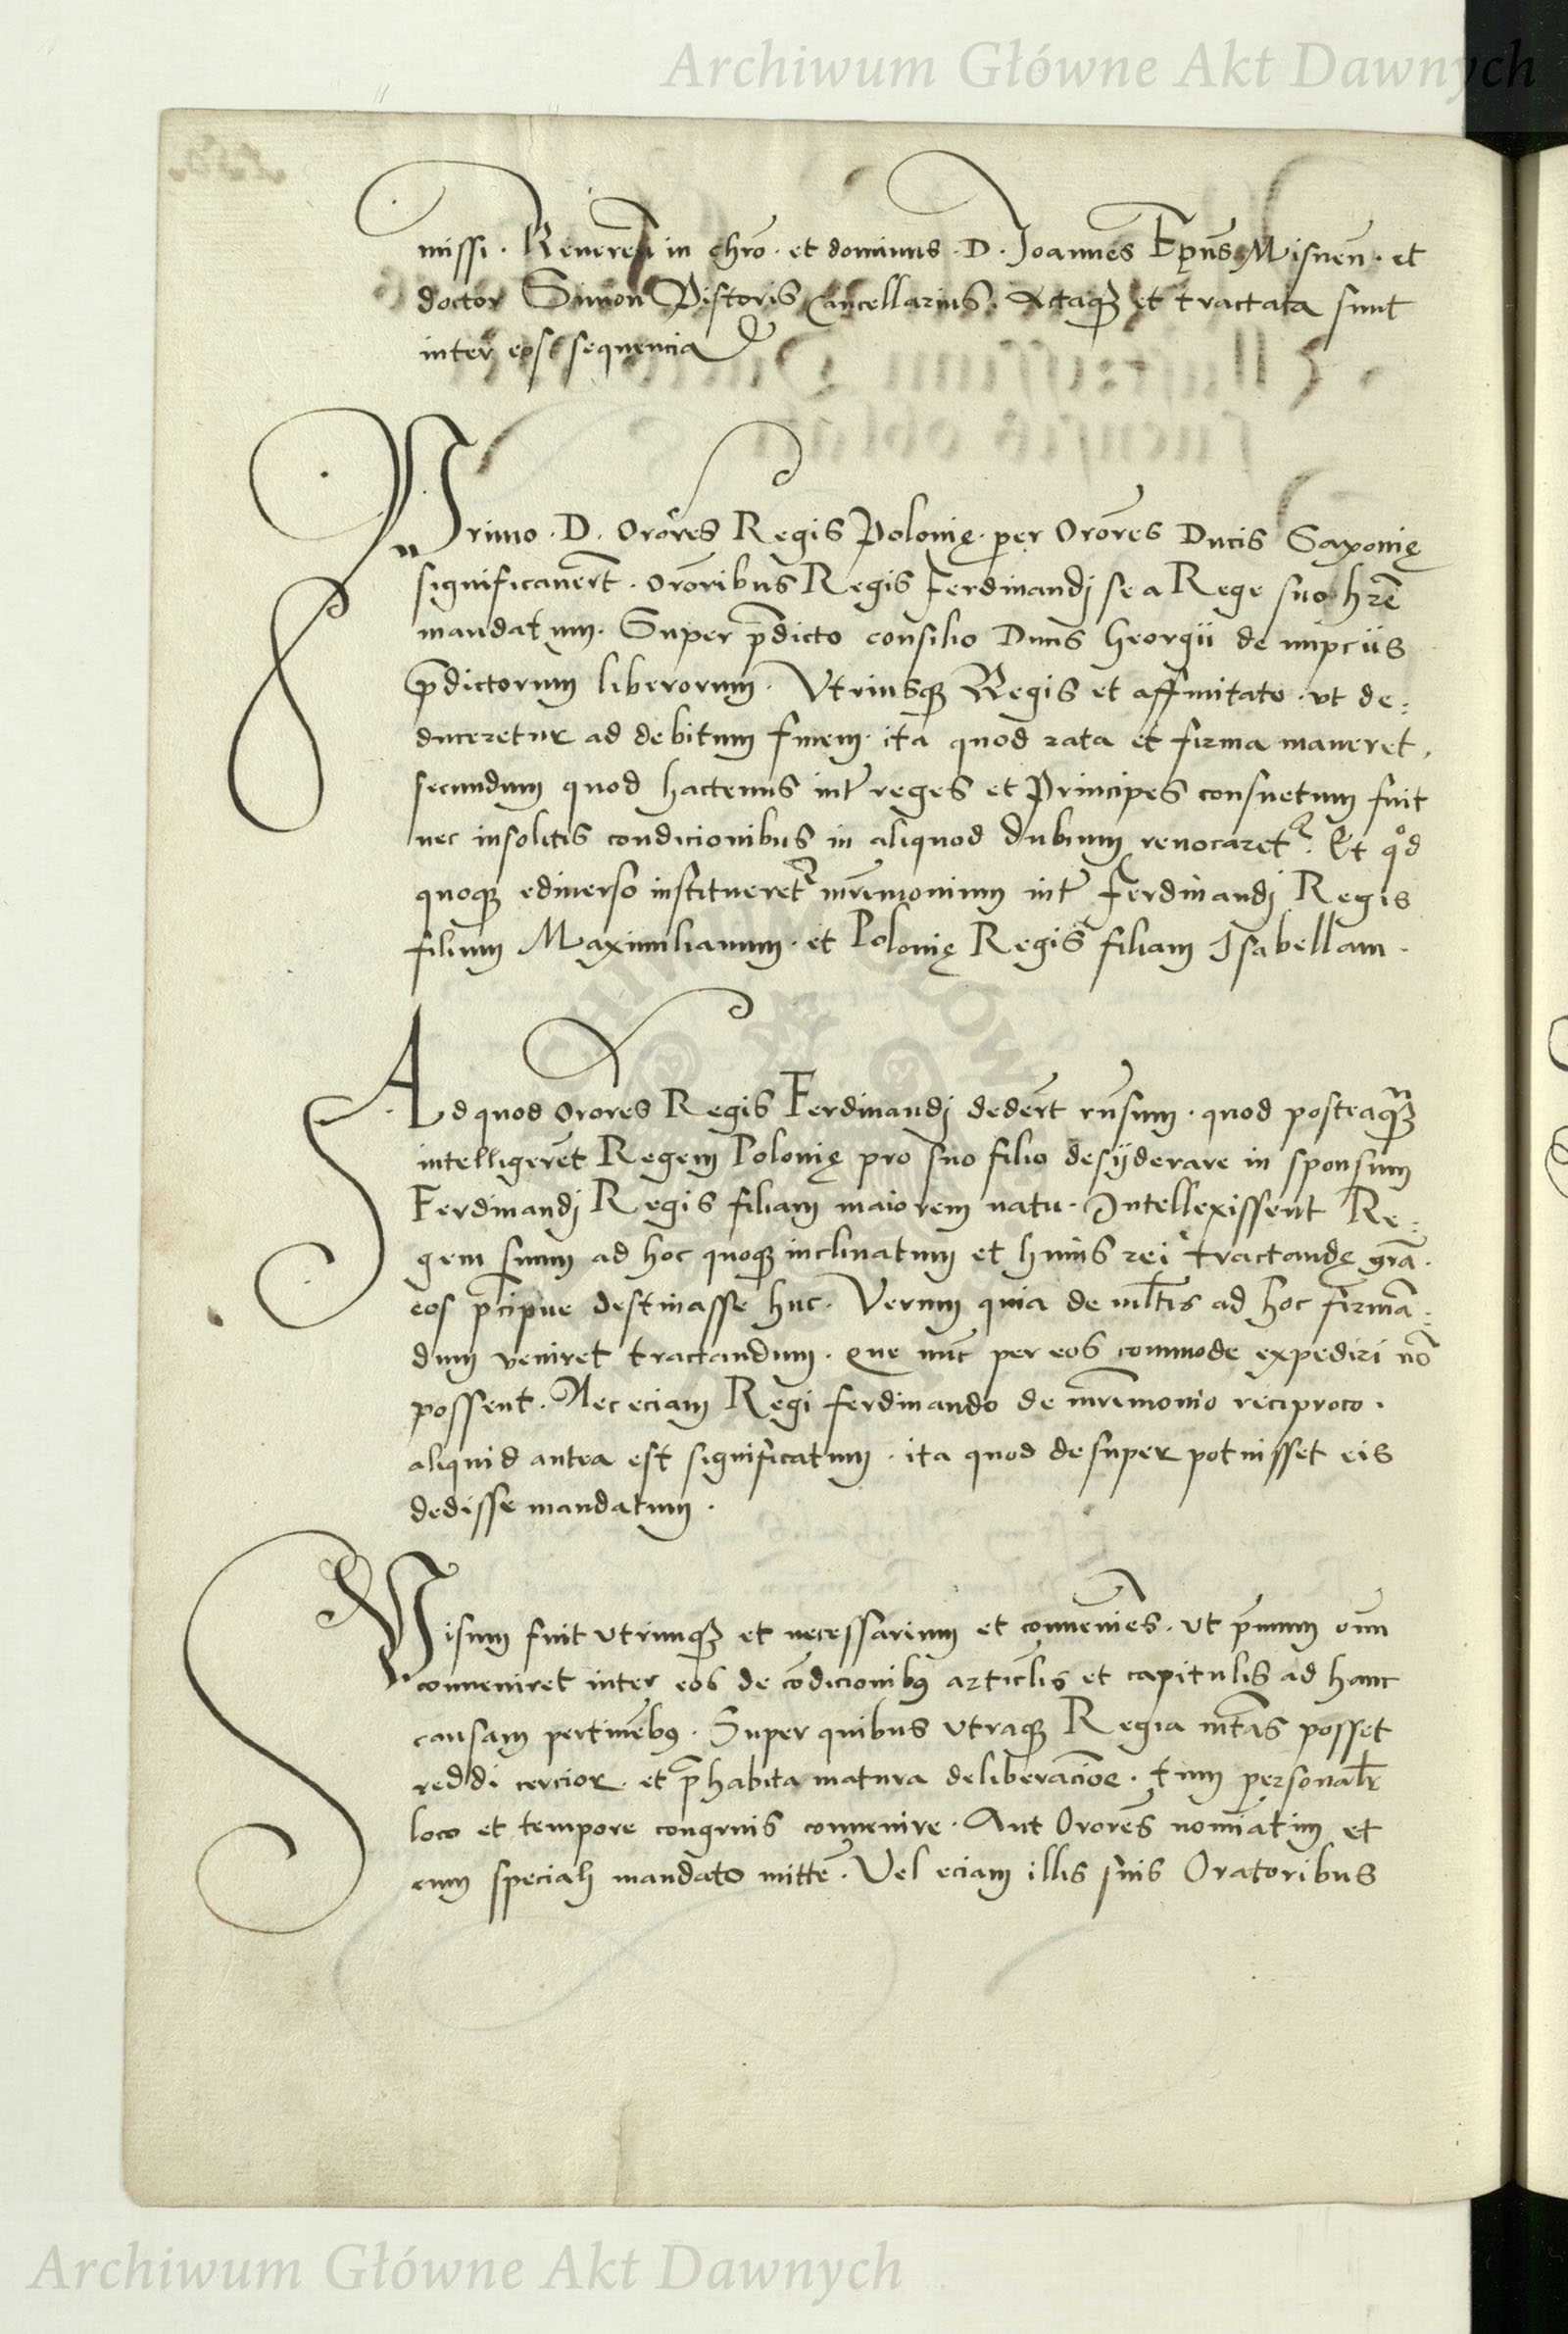 Archiwum Główne Akt Dawnych
missi. Reueren̄ in chrō. et dominus. D. Joannes Ep̄us Misnen̄. et
doctor Simon Pistoris Cancellarius. Actaqꝫ et tractata sunt
inter eos sequencia
Primo. D. Orōres Regis Polonię. per Orōres Ducis Saxonię
significauer̄t. orōribus Regis Ferdinandj se a Rege suo hr̄e
mandatum. Super p̄dicto consilio Ducis Georgii de nupciis
p̄dictorum liberorum. Vtriusqꝫ Regis et affinitate. vt de:
duceretur ad debitum finem. ita quod rata et firma maneret,
secundum quod hactenus int̄ reges et Principes consuetum fuit
nec insolitis condicionibus in aliquod dubium reuocaret̄. Et qͦd
quoqꝫ ediuerso institueret̄ mr̄imonium int̄ Ferdinandj Regis
filium Maximilianum. et Polonię Regis filiam Isabellam.
Ad quod orōres Regis Ferdinandj deder̄t rn̄sum. quod posteaqꝫ
intelligerēt Regem Polonię pro suo filio desyderare in sponsum
Ferdinandj Regis filiam maiorem natu. Intellexissent Re:
gem suum ad hoc quoqꝫ inclinatum et huius rei tractandę grā.
eos p̄cipue destinasse huc. Verum quia de ml̄tis ad hoc firmā:
dum veniret tractandum. que nūc per eos commode expediri nō
possent. Nec eciam Regi ferdinando de mr̄imonio reciproco.
aliquid antea est significatum. ita quod desuper potuisset eis
dedisse mandatum.
Visum fuit vtrinqꝫ et necessarium et conueniēs. vt p̄mum om̄
conueniret inter eos de cōdicionibꝰ articl̄is et capitulis ad hanc
causam pertinēbꝰ. Super quibus vtraqꝫ Regia mt̄as posset
reddi cercior. et p̄habita matura deliberac̄ioe. tum personalr̄
loco et tempore congruis conuenire. Aut Orōres nomīatim et
cum speciali mandato mittē. Vel eciam illis suis Oratoribus
Archiwum Główne Akt Dawnych